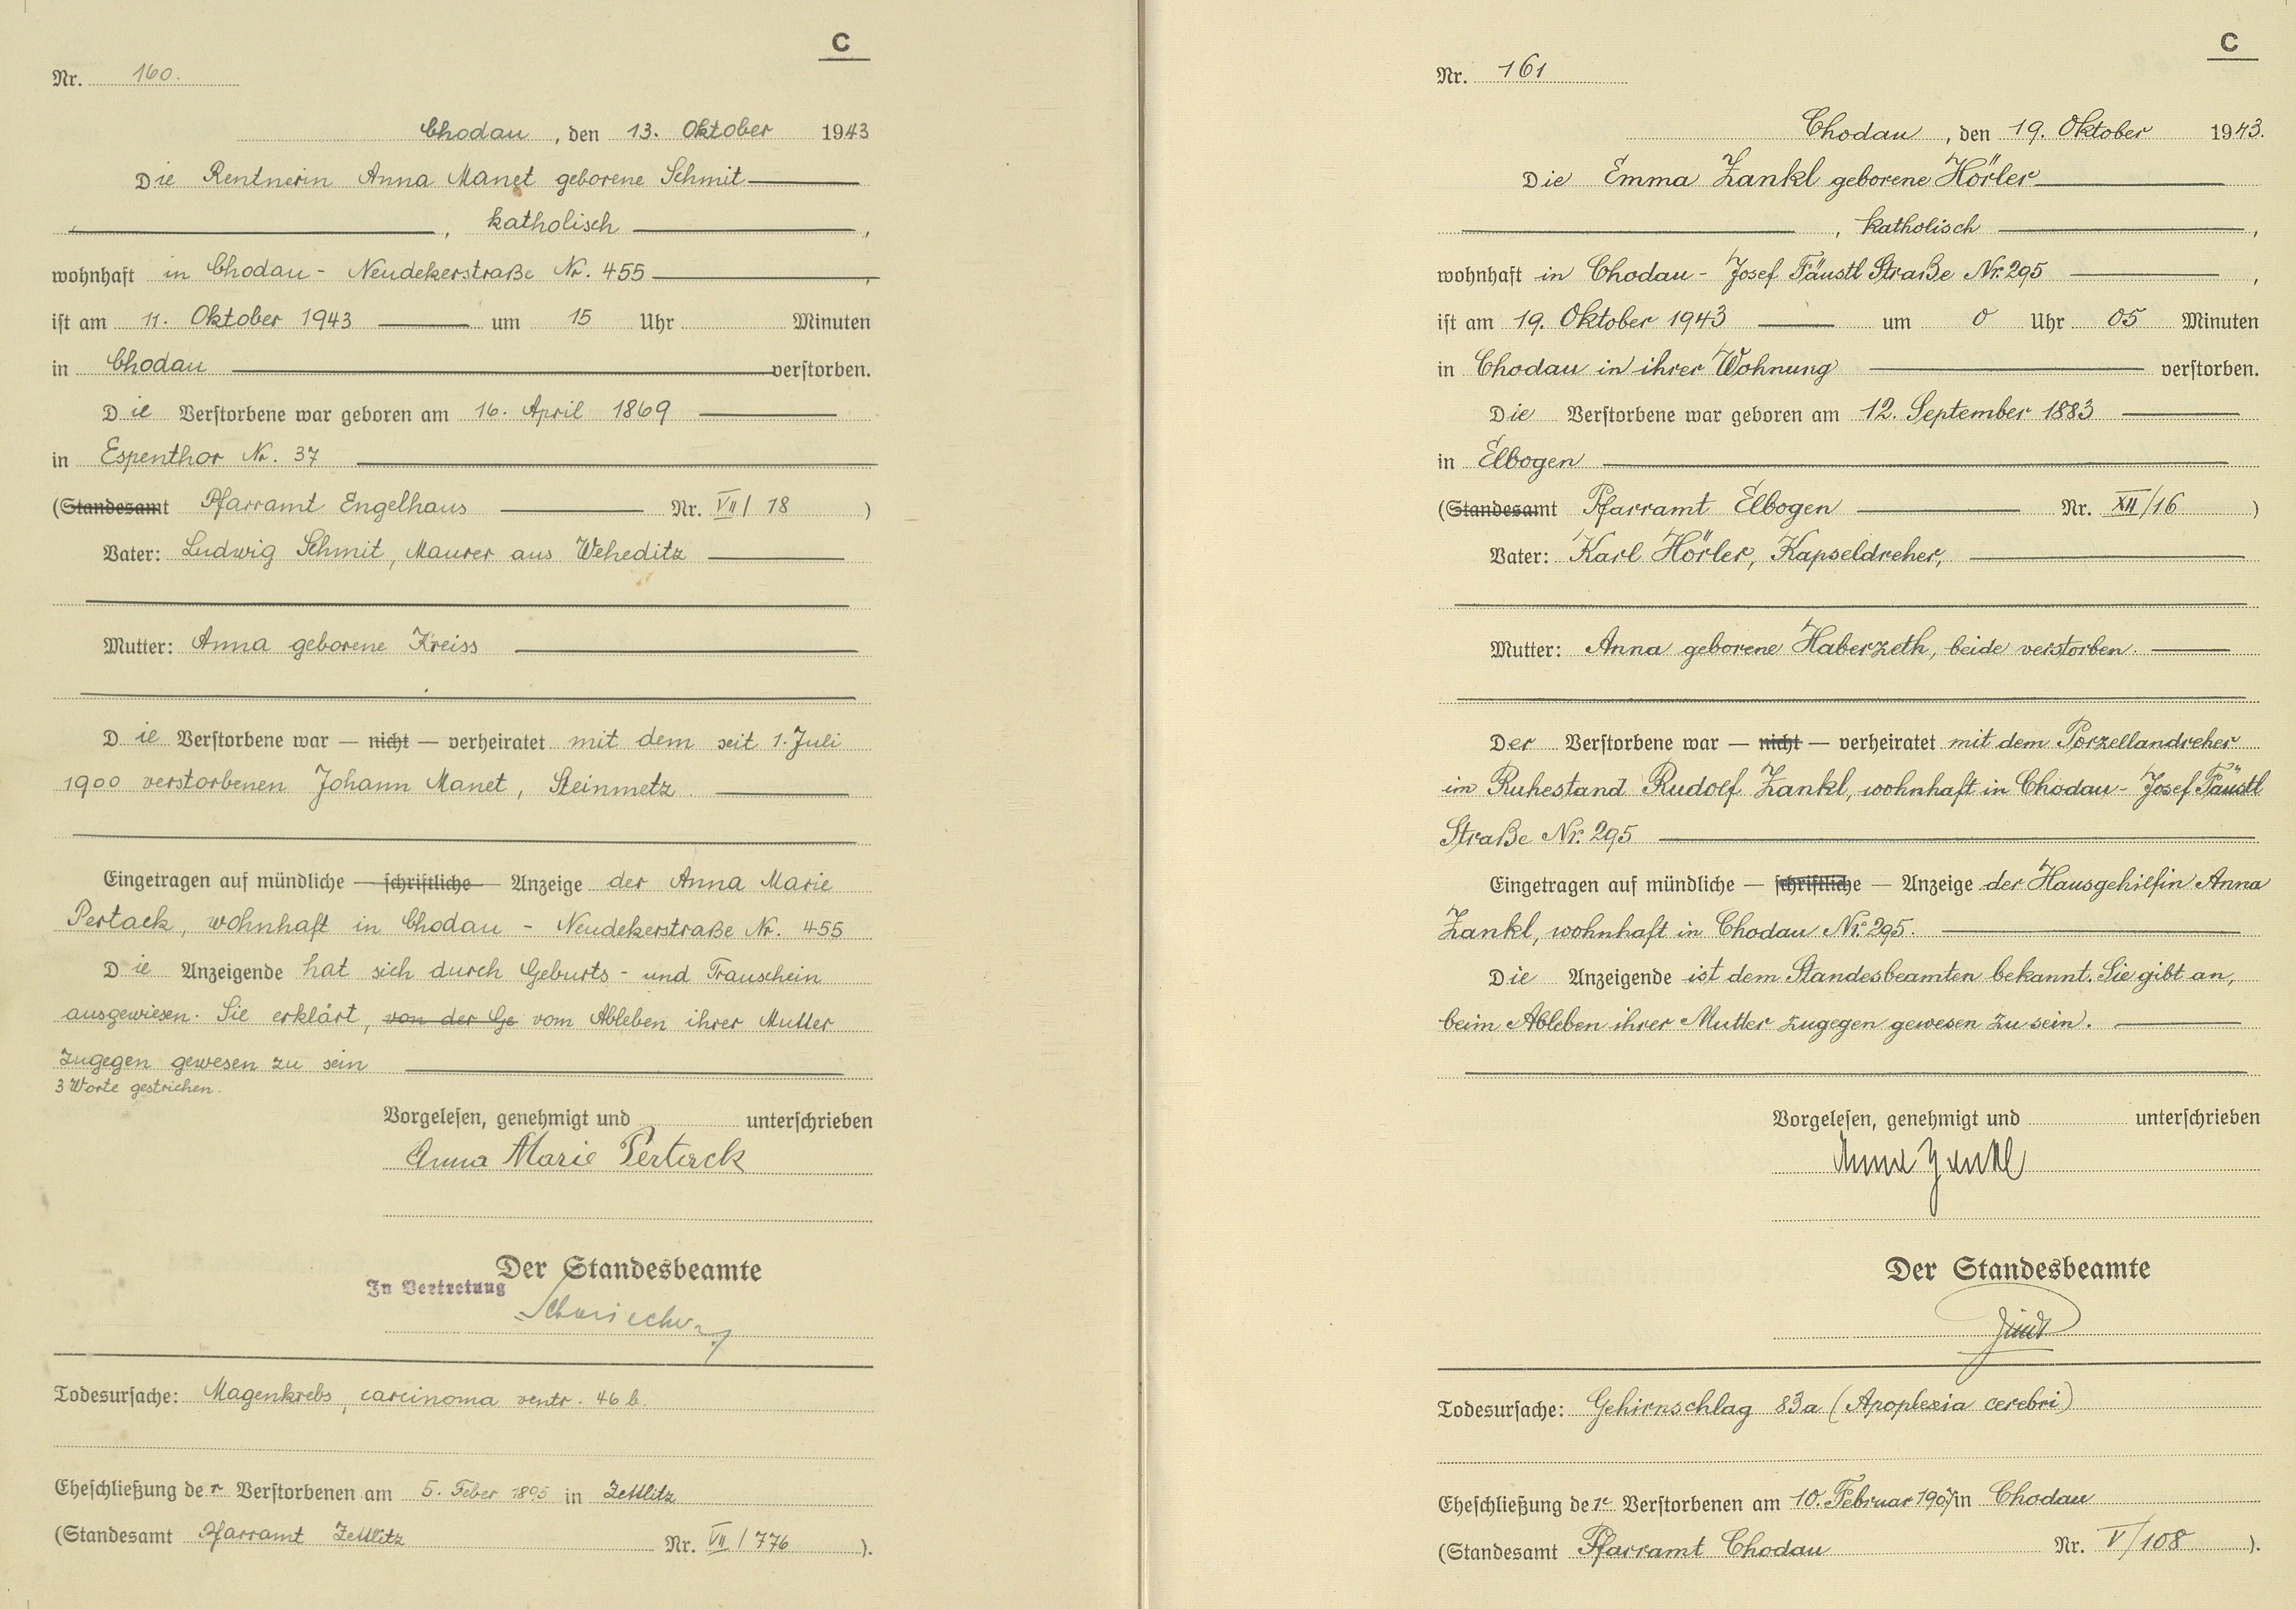 C
Nr. 160.
Chodau, den 13. Oktober 1943
Die Rentnerin Anna Manet geborene Schmit
, katholisch ,
wohnhaft in Chodau - Neudekerstraße Nr. 455 ,
ist am 11. Oktober 1943 um 15 Uhr Minuten
in Chodau verstorben.
Die Verstorbene war geboren am 16. April 1869
in Espenthor Nr. 37
(Standesamt Pfarramt Engelhaus Nr. VII / 18 )
Vater: Ludwig Schmit, Maurer aus Weheditz
Mutter: Anna geborene Kreiss
Die Verstorbene war — nicht — verheiratet mit dem seit 1. Juli
1900 verstorbenen Johann Manet, Steinmetz.
Eingetragen auf mündliche — schriftliche — Anzeige der Anna Marie
Pertack, wohnhaft in Chodau - Neudekerstraße Nr. 455
Die Anzeigende hat sich durch Geburts- und Trauschein
ausgewiesen. Sie erklärt, von der Ge vom Ableben ihrer Mutter
zugegen gewesen zu sein
3 Worte gestrichen.
Vorgelesen, genehmigt und unterschrieben
Anna Marie Pertack
Der Standesbeamte
In Vertretung
Todesursache: Magenkrebs, carcinoma ventr. 46 b.
Eheschließung der Verstorbenen am 5. Feber 1895 in Zettlitz
(Standesamt Pfarramt Zettlitz Nr. VII / 776 ).
C
Nr. 161
Chodau, den 19. Oktober 1943.
Die Emma Zankl geborene Hörler
, katholisch ,
wohnhaft in Chodau - Josef Täustl Straße Nr. 295 ,
ist am 19. Oktober 1943 um 0 Uhr 05 Minuten
in Chodau in ihrer Wohnung verstorben.
Die Verstorbene war geboren am 12. September 1883
in Elbogen
(Standesamt Pfarramt Elbogen Nr. XII/16 )
Vater: Karl Hörler, Kapseldreher,
Mutter: Anna geborene Haberzeth, beide verstorben.
Der Verstorbene war — nicht — verheiratet mit dem Porzellandreher
im Ruhestand Rudolf Zankl, wohnhaft in Chodau - Josef Täustl
Straße Nr. 295
Eingetragen auf mündliche — schriftliche — Anzeige der Hausgehilfin Anna
Zankl, wohnhaft in Chodau Nr. 295.
Die Anzeigende ist dem Standesbeamten bekannt. Sie gibt an,
beim Ableben ihrer Mutter zugegen gewesen zu sein.
Vorgelesen, genehmigt und unterschrieben
Anna Zankl
Der Standesbeamte
Todesursache: Gehirnschlag 83a (Apoplexia cerebri)
Eheschließung der Verstorbenen am 10. Februar 1907 in Chodau
(Standesamt Pfarramt Chodau Nr. V/108 ).